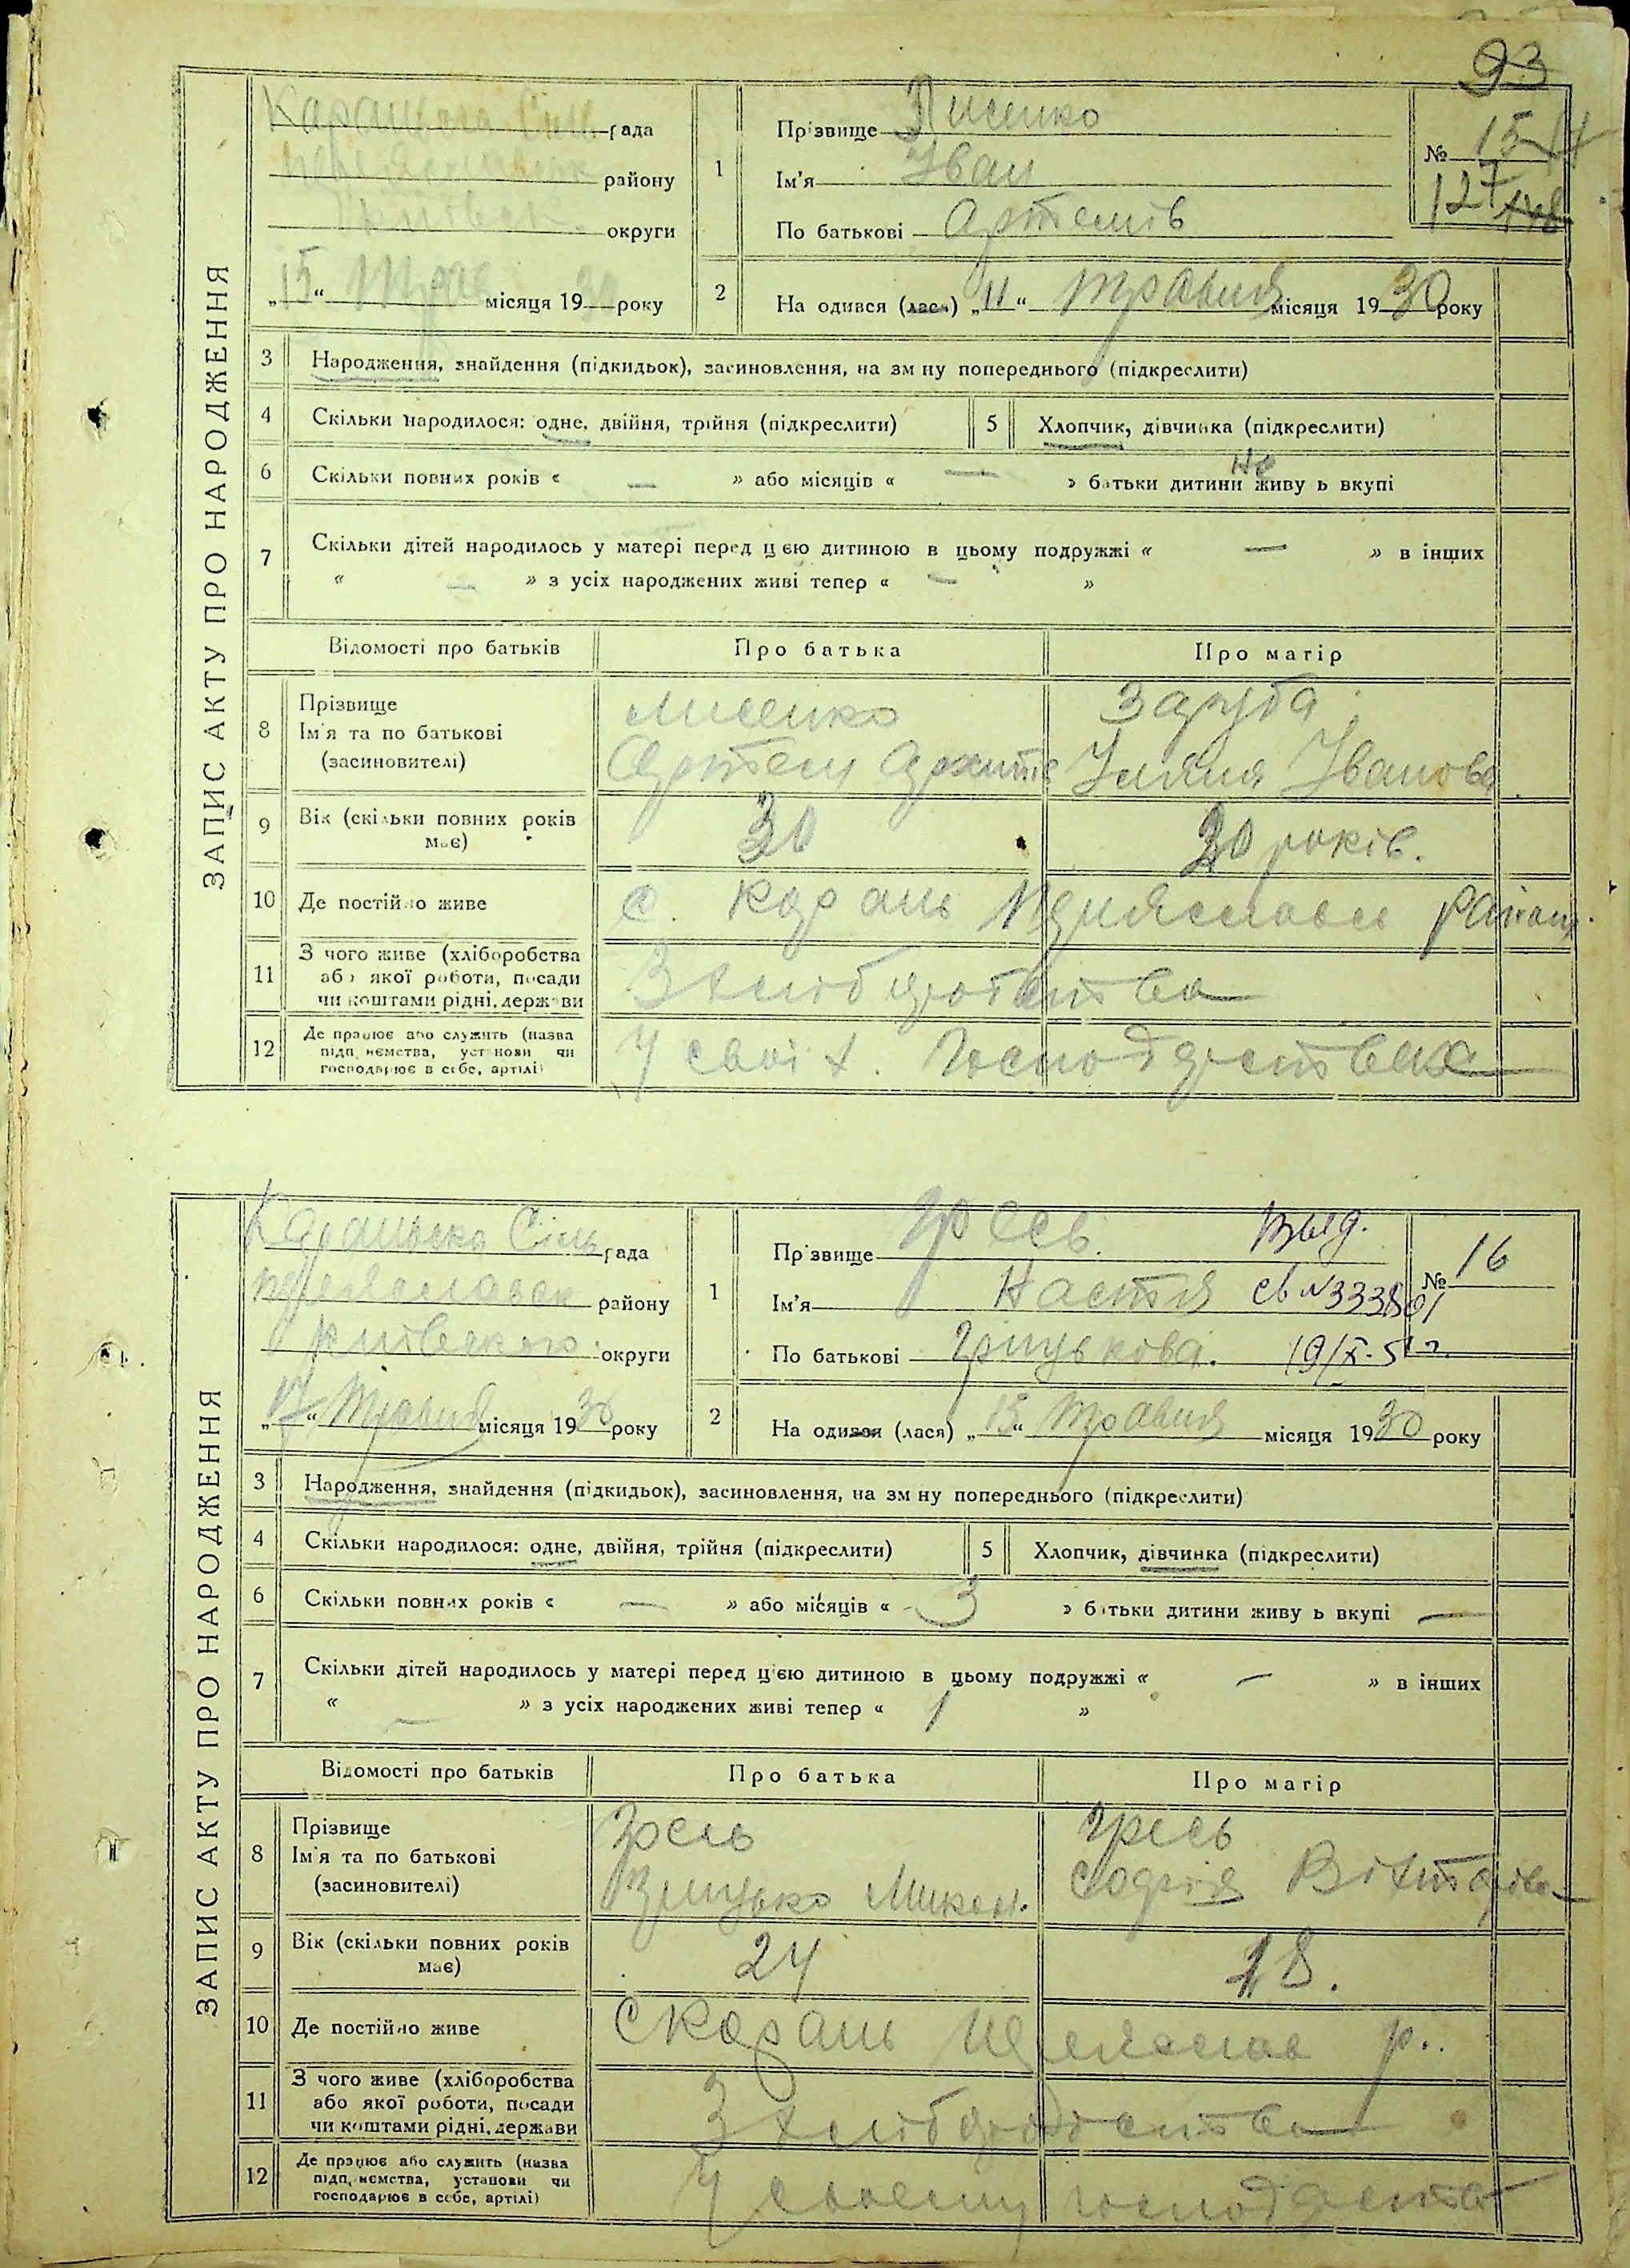 93
ЗАПИС АКТУ ПРО НАРОДЖЕННЯ
рада
району
округи
„15“ Трав місяця 19 року
1
Прізвище Лисенко
Ім'я Іван
По батькові Артемів
№ 15
127
2
На одився (лась) „11“ травня місяця 1930 року
3
Народження, знайдення (підкидьок), засиновлення, на зм ну попереднього (підкреслити)
4
Скільки народилося: одне, двійня, трійня (підкреслити)
5
Хлопчик, дівчинка (підкреслити)
6
Скільки повних років « — » або місяців « — » батьки дитини не живу ь вкупі
7
Скільки дітей народилось у матері перед цею дитиною в цьому подружжі « — » в інших
« — » з усіх народжених живі тепер « — »
Відомості про батьків
Про батька
Про матір
8
Прізвище
Ім'я та по батькові
(засиновителі)
Лисенко
Артем
Заруба
Уляна Іванова
9
Вік (скільки повних років має)
30
20 років.
10
Де постійно живе
с. Карань Переяславськ район
11
З чого живе (хліборобства
або якої роботи, посади
чи коштами рідні, держави
З хліборобства
12
Де працює або служить (назва
підп. ємства, установи чи
господарює в себе, артілі)
У своїх господарствах
ЗАПИС АКТУ ПРО НАРОДЖЕННЯ
Караньська Сіль рада
Переяславськ району
округи
„17“ Травня місяця 1930 року
1
Прізвище Гресь
Ім'я Настя
По батькові Грицькова.
Выд.
св №
19/X-51 г.
№ 16
2
На одився (лася) „15“ Травня місяця 1930 року
3
Народження, знайдення (підкидьок), засиновлення, на зм ну попереднього (підкреслити)
4
Скільки народилося: одне, двійня, трійня (підкреслити)
5
Хлопчик, дівчинка (підкреслити)
6
Скільки повних років « — » або місяців « 3 » батьки дитини живу ь вкупі —
7
Скільки дітей народилось у матері перед цією дитиною в цьому подружжі « — » в інших
« — » з усіх народжених живі тепер « 1 »
Відомості про батьків
Про батька
Про матір
8
Прізвище
Ім'я та по батькові
(засиновителі)
Гресь
Грицько Микол.
Гресь
Софія
9
Вік (скільки повних років має)
24
18.
10
Де постійно живе
с Карань Переяслав р.
11
З чого живе (хліборобства
або якої роботи, посади
чи коштами рідні, держави
З хліборобства
12
Де працює або служить (назва
підп. ємства, установи чи
господарює в себе, артілі)
У своєму господарстві